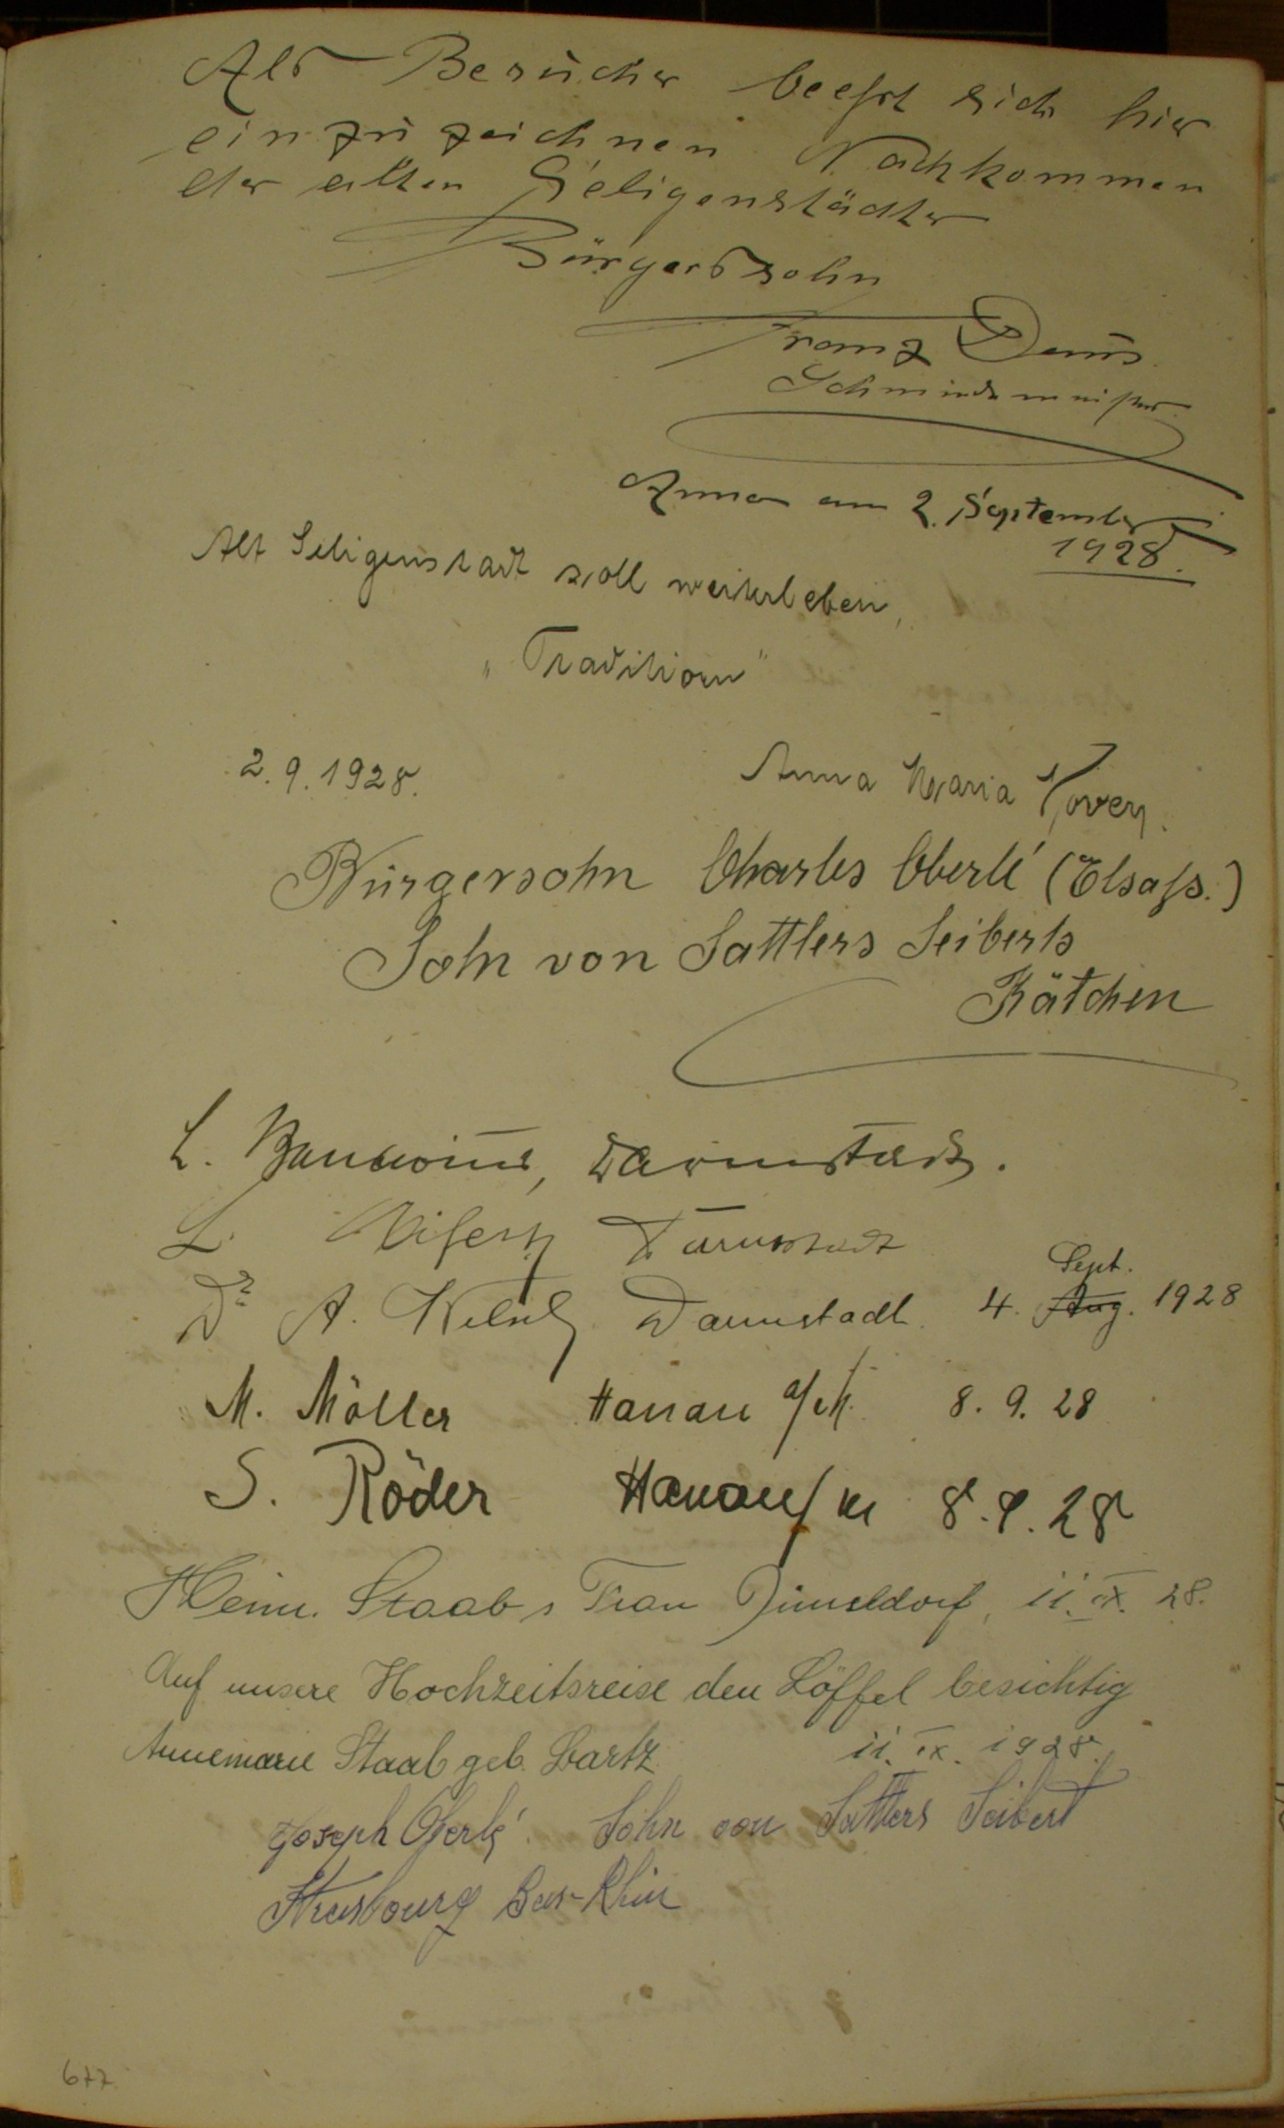 Als Besucher beehrt sich hier
einzuzeichnen Nachkommen
der alten Seligenstädter
Bürgerssohn
Franz
Schmiedemeister
am 2. September
1928.
Alt Seligenstadt soll weiterleben,
„Tradition"
2.9.1928.
Anna Maria
Bürgersohn Charles Oberlé (Elsaß.)
Sohn von Sattlers Seiberts
Kätchen
L. Darmstadt.
L. Darmstadt
Dr A. Darmstadt. 4. Sept. Aug. 1928
M. Möller Hanau a/M. 8.9.28
S. Röder Hanau/M 8.9.28
Heinr. Staab, Frau Düsseldorf, 11. IX. 28.
Auf unsere Hochzeitsreise den Löffel besichtig
Annemarie Staab geb. Bartz 11. IX. 1928.
Joseph Oberlé. Sohn von Sattlers Seibert
Strasbourg Bas-Rhin
677